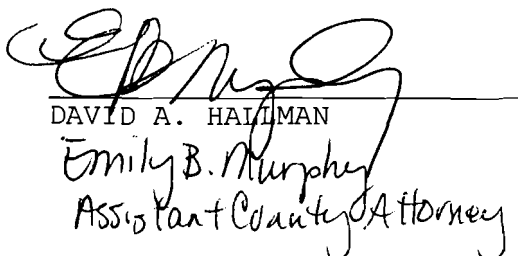 EB Murphy
DAVID A. HALLMAN
Emily B. Murphy
Assistant County Attorney